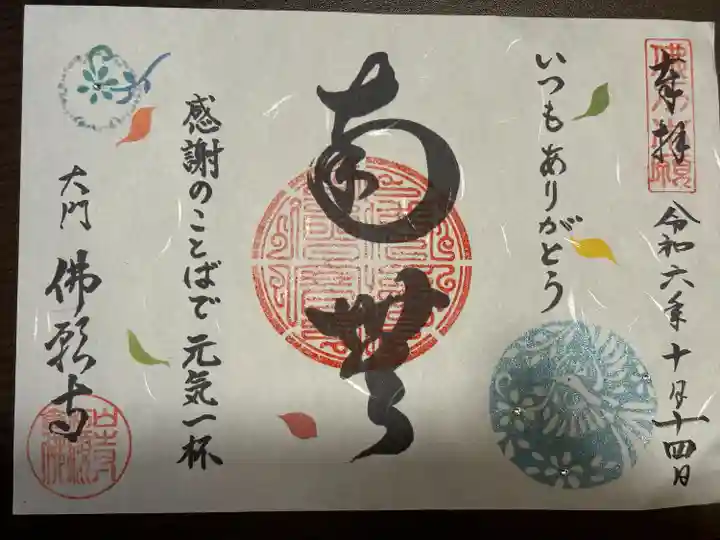 奉拝
令和六年十月十四日
いつもありがとう
南無
感謝のことばで元気一杯
大門 佛願寺